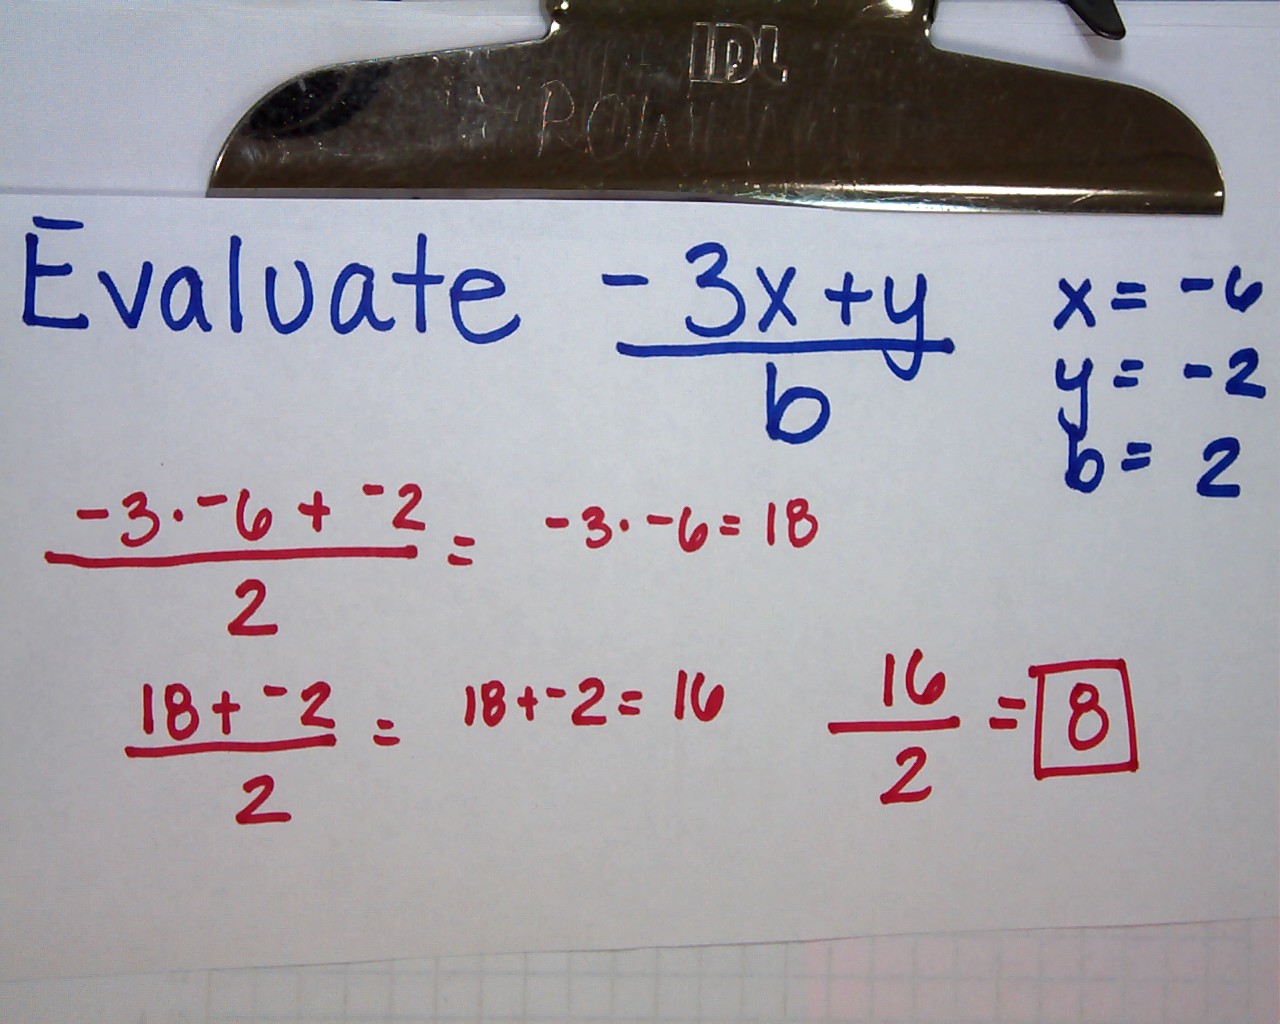 IDL
Evaluate -3x+y x= -6
b y= -2
b= 2
-3·-6+-2 = -3·-6=18
2
18+-2 = 18+-2=16 16 = 8
2 2